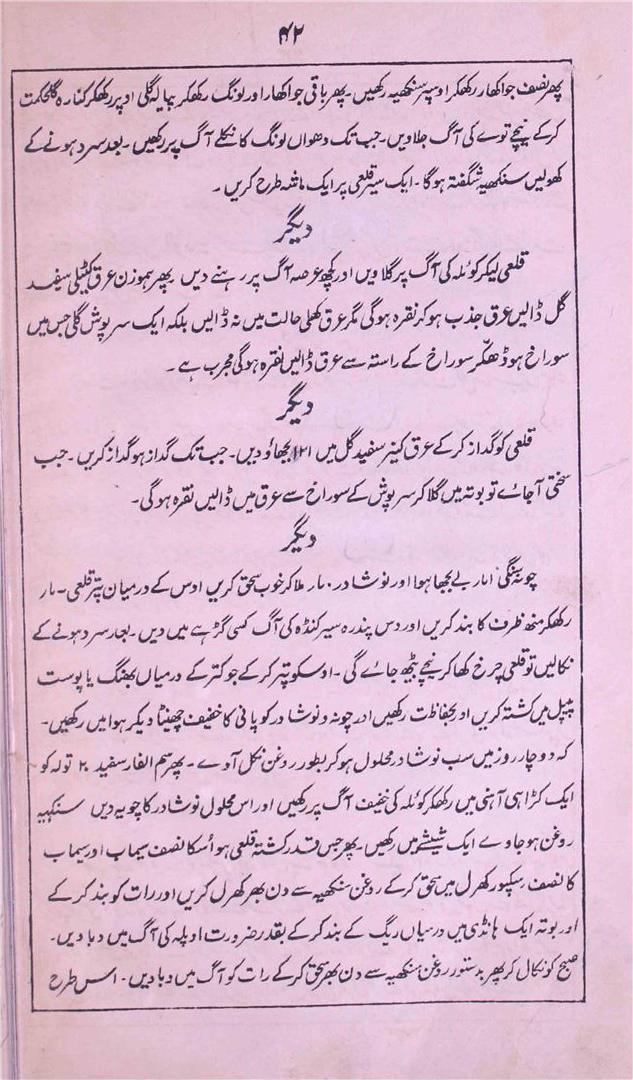 ۴۲
پھر نصف جواکھار رکھکر اوسپر سنکھیہ رکھیں۔ پھر باقی جواکھار اور لونگ رکھکر پیالہ گلی اوپر رکھکر کنارہ گلحکمت
کر کے نیچے توے کی آگ جلاویں۔ جب تک دھواں لونگ کا نکلے آگ پر رکھیں۔ بعد سرد ہونے کے
کھولیں سنکھیہ شگفتہ ہوگا۔ ایک سیر قلعی پر ایک ماشہ طرح کریں۔
دیگر
قلعی لیکر کوئلہ کی آگ پر گلاویں اور کچھ عرصہ آگ پر رہنے دیں پھر ہموزن عرق کٹیلی سفید
گل ڈالیں عرق جذب ہو کر نقرہ ہوگی مگر عرق کھلی حالت میں نہ ڈالیں بلکہ ایک سرپوش گلی جس میں
سوراخ ہو ڈھکر سوراخ کے راستہ سے عرق ڈالیں نقرہ ہوگی مجرب ہے۔
دیگر
قلعی کو گداز کر کے عرق کنیر سفید گل میں ۱۲۱ بجھاؤ دیں۔ جب تک گداز ہو گداز کریں۔ جب
سختی آجائے تو بوتہ میں گلا کر سرپوش کے سوراخ سے عرق میں ڈالیں نقرہ ہوگی۔
دیگر
چونہ سنگی امار بے بجھا ہوا اور نوشادر ۰ مار ملا کر خوب سحق کریں اوس کے درمیان پتر قلعی ۔ مار
رکھکر منھ ظرف کا بند کریں اور دس پندرہ سیر کنڈہ کی آگ کسی گڑہے میں دیں۔ بعد سرد ہونے کے
نکالیں تو قلعی چرخ کھا کر نیچے بیٹھ جائے گی۔ اوسکو پتر کر کے جو کتر کے درمیاں بھنگ یا پوست
پیپل میں کشتہ کریں اور بحفاظت رکھیں اور چونہ و نوشادر کو پانی کا خفیف چھینٹا دیکر ہوا میں رکھیں۔
کہ دو چار روز میں سب نوشادر محلول ہو کر بطور روغن نکل آوے۔ پھر سم الفار سفید ۲۰ تولہ کو
ایک کڑاہی آہنی میں رکھکر کوئلہ کی خفیف آگ پر رکھیں اور اس محلول نوشادر کا چوبہ دیں سنکہیہ
روغن ہو جاوے ایک شیشے میں رکھیں۔ پھر جس قدر کشتہ قلعی ہو اُسکا نصف سیماب اور سیماب
کا نصف رسکپور کھرل میں سحق کر کے روغن سنکھیہ سے دن بھر کھرل کریں اور رات کو بند کر کے
اور بوتہ ایک ہانڈی میں درمیاں ریگ کے بند کر کے بقدر ضرورت اوپلہ کی آگ میں دبا دیں۔
صبح کو نکال کر پھر بدستور روغن سنکھیہ سے دن بھر سحق کر کے رات کو آگ میں دبا دیں۔ اس طرح